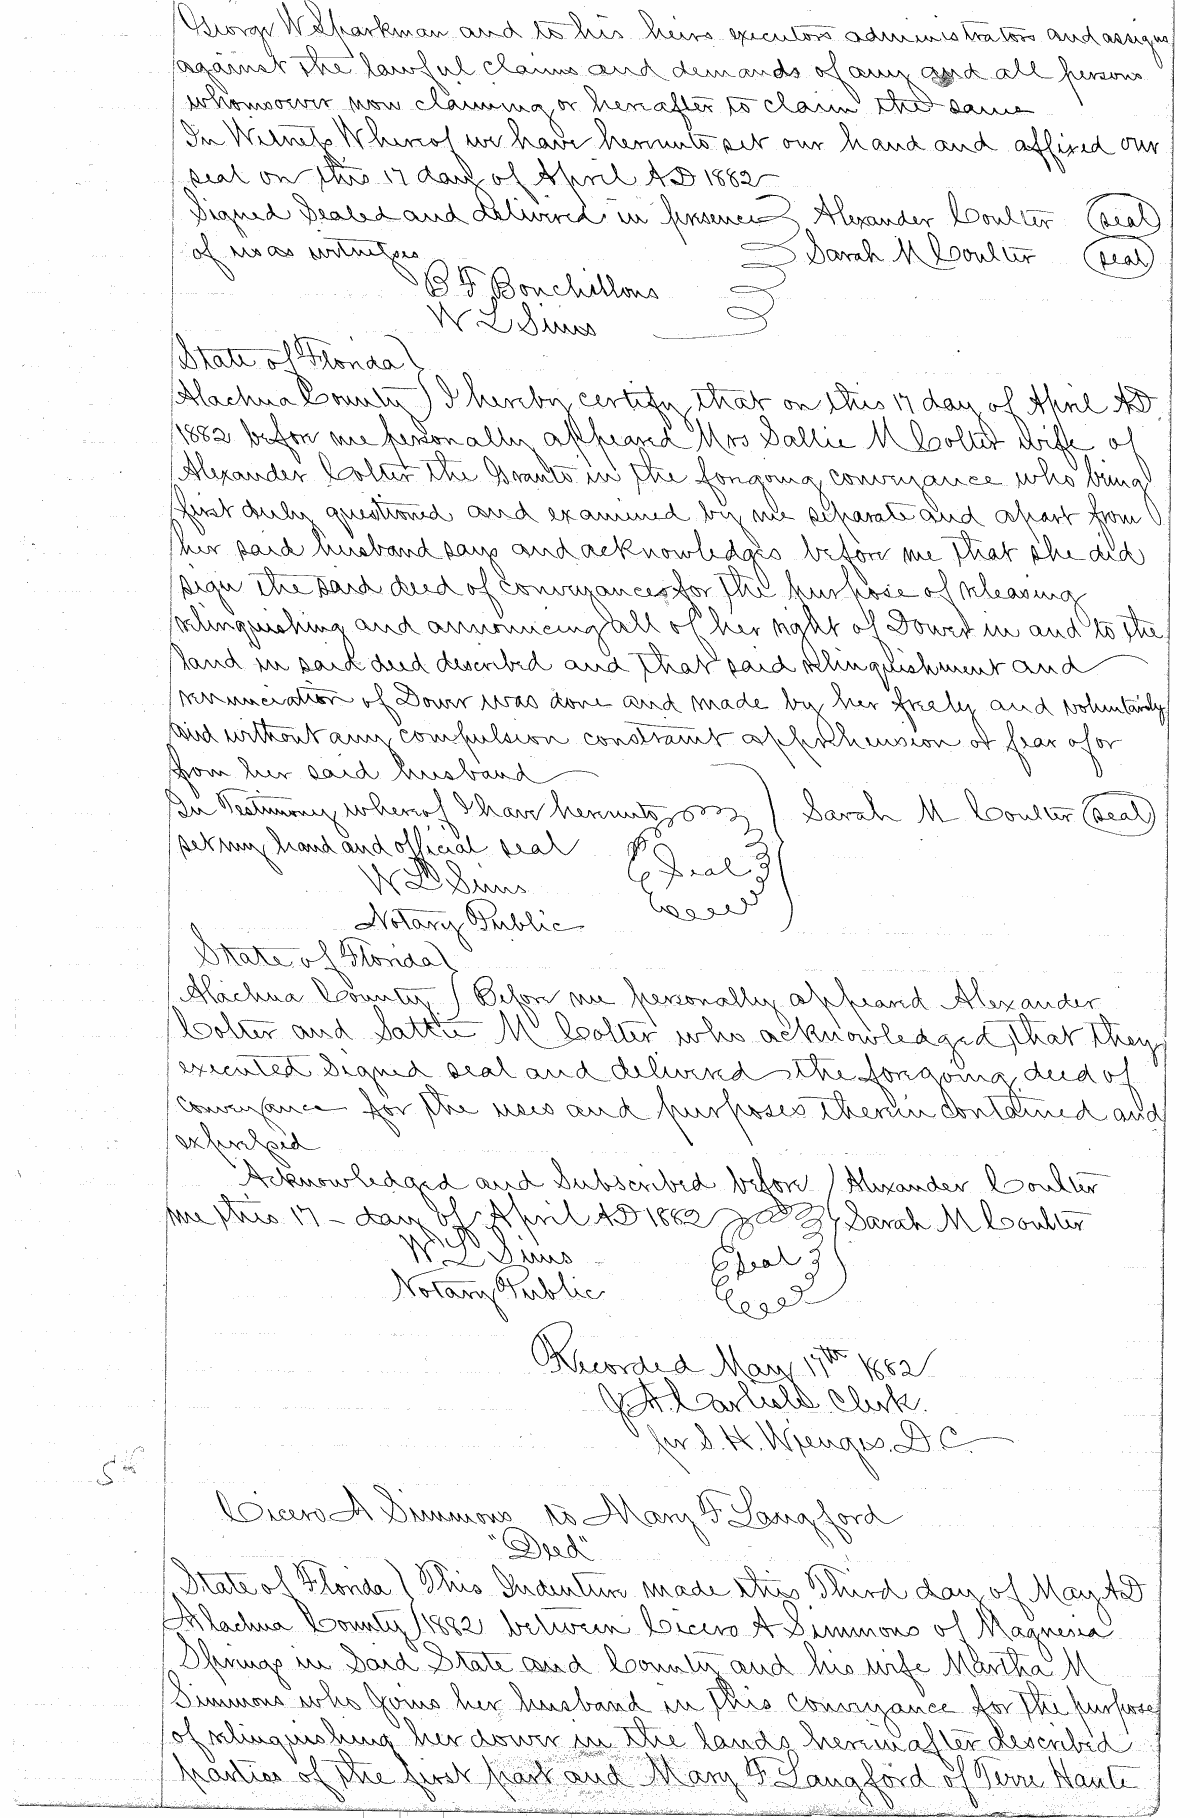 George W Sparkman and to his heirs executors administrators and assigns
against the lawful claims and demands of any and all persons
whomsoever now claiming or hereafter to claim the same
In Witness Whereof we have hereunto set our hand and affixed our
seal on this 17 day of April AD 1882
Signed Sealed and delivered in presence Alexander Coulter (seal)
of us as witnesses Sarah M Coulter (seal)
B F Bonchillons
W L Sims
State of Florida)
Alachua County) I hereby certify that on this 17 day of April AD
1882 before me personally appeared Mrs Sallie M Colter wife of
Alexander Colter the Grantor in the foregoing conveyance who being
first duly questioned and examined by me separate and apart from
her said husband says and acknowledges before me that she did
sign the said deed of conveyances for the purpose of releasing
relinquishing and announcing all of her right of Dower in and to the
land in said deed described and that said relinquishment and
renunciation of Dower was done and made by her freely and voluntarily
and without any compulsion constraint apprehension or fear of or
from her said husband
In Testimony whereof I have hereunto Sarah M Coulter (seal)
set my hand and official seal Seal
W L Sims
Notary Public
State of Florida)
Alachua County) Before me personally appeared Alexander
Colter and Sattie M Colter who acknowledged that they
executed Signed seal and delivered the foregoing deed of
conveyance for the uses and purposes therein contained and
expressed
Acknowledged and Subscribed before Alexander Coulter
me this 17 - day of April AD 1882 Sarah M Coulter
W L Sims Seal
Notary Public
Recorded May 17th 1882
J. A. Carlisle Clerk.
per S. H. Wienges. D C
5th
Cicero A Simmons to Mary F Langford
"Deed"
State of Florida) This Indenture made this Third day of May AD
Alachua County) 1882 between Cicero A Simmons of Magnesia
Springs in Said State and County and his wife Martha M
Simmons who joins her husband in this conveyance for the purpose
of relinquishing her dower in the lands hereinafter described
parties of the first part and Mary F Langford of Terre Haute